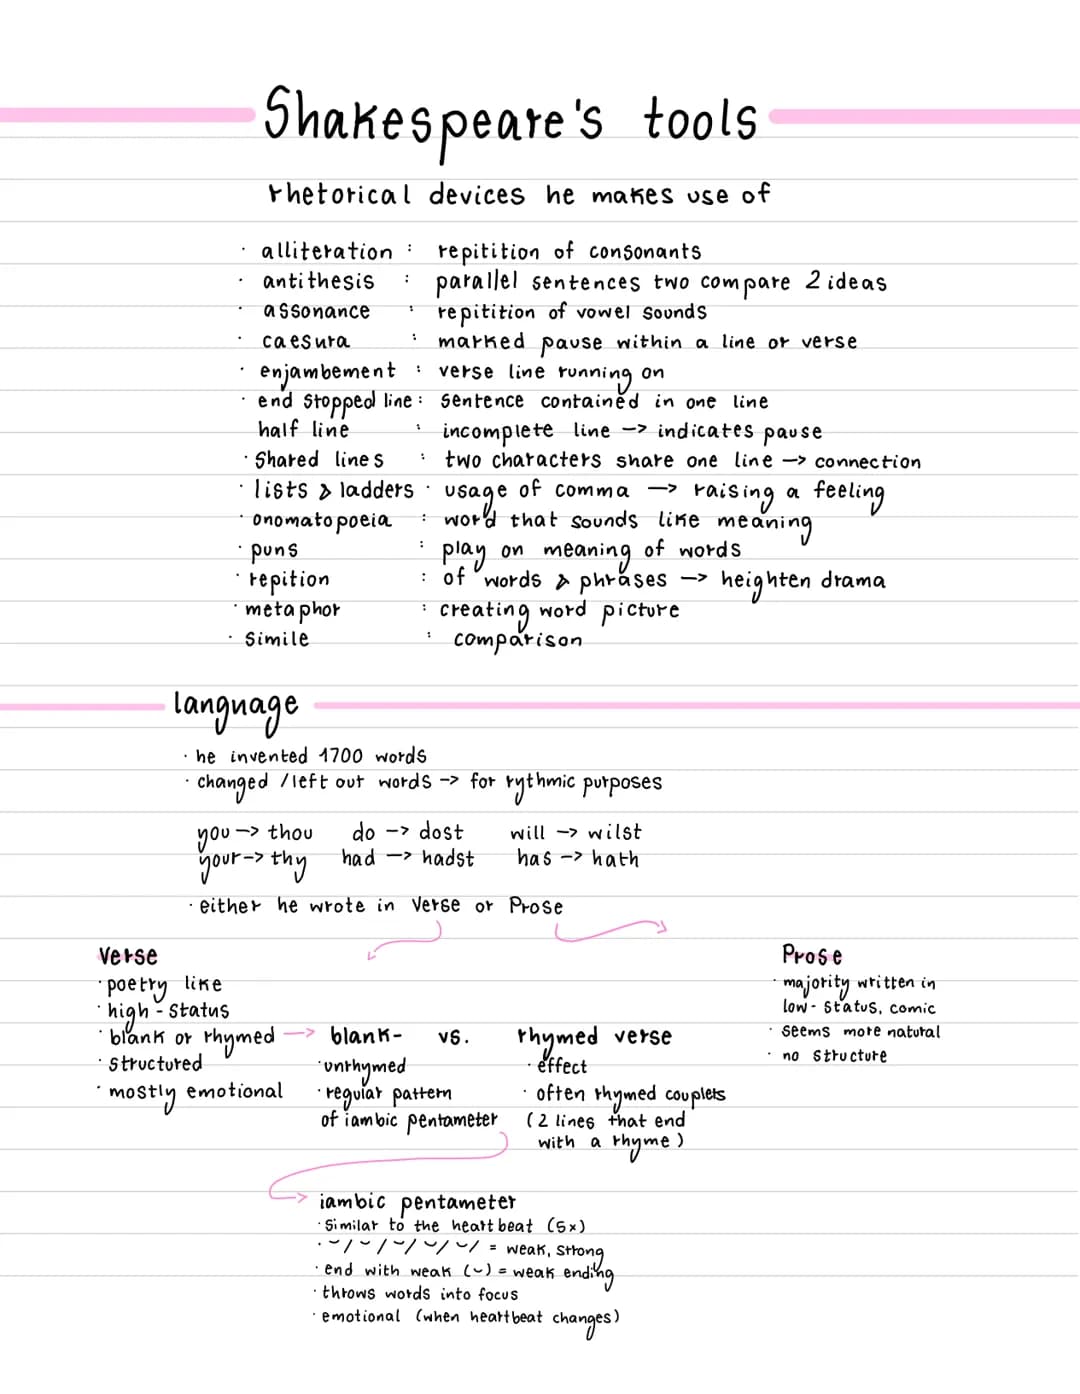 Shakespeare's tools
rhetorical devices he makes use of
· alliteration : repitition of consonants
· antithesis : parallel sentences two compare 2 ideas
· assonance : repitition of vowel sounds
· caesura : marked pause within a line or verse
· enjambement : verse line running on
· end stopped line : sentence contained in one line
half line : incomplete line -> indicates pause
· shared lines : two characters share one line -> connection
· lists & ladders · usage of comma -> raising a feeling
· onomatopoeia : word that sounds like meaning
· puns : play on meaning of words
· repition : of words & phrases -> heighten drama
· metaphor : creating word picture
· simile : comparison
language
· he invented 1700 words
· changed / left out words -> for rythmic purposes
you -> thou do -> dost will -> wilst
your -> thy had -> hadst has -> hath
· either he wrote in Verse or Prose
Verse
· poetry like
· high - status
· blank or rhymed ->
· structured
· mostly emotional
blank- vs. rhymed verse
· unrhymed
· regular pattern
of iambic pentameter
· effect
· often rhymed couplets
(2 lines that end
with a rhyme)
Prose
· majority written in
low - status, comic
· seems more natural
· no structure
iambic pentameter
· similar to the heartbeat (5x)
· ⏑/⏑/⏑/⏑/⏑/ = weak, strong
· end with weak (⏑) = weak ending
· throws words into focus
· emotional (when heartbeat changes)